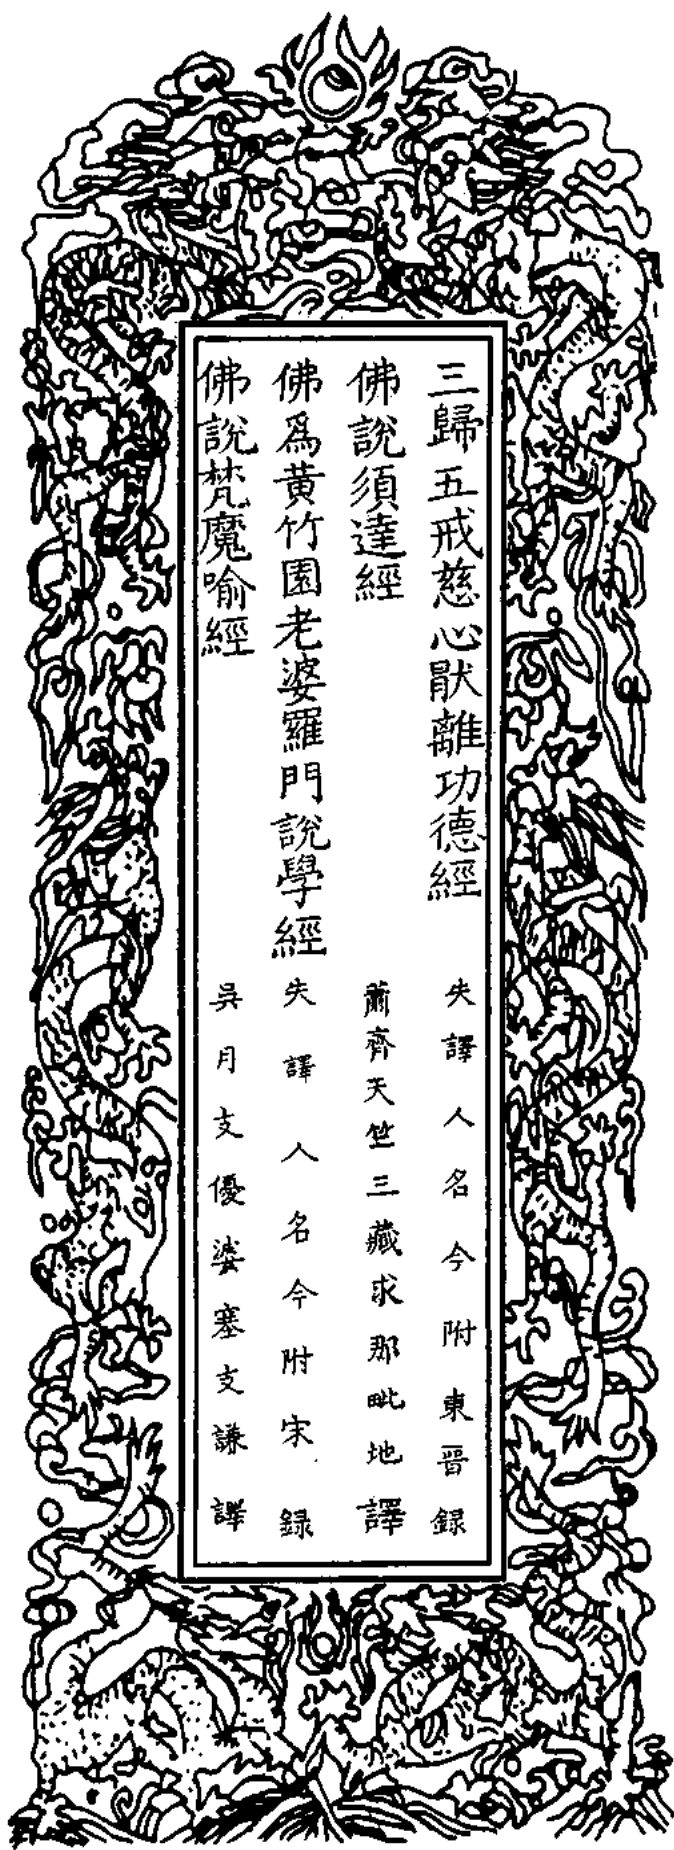 三歸五戒慈心猒離功德經　失譯人名今附東晉錄
佛說須達經　蕭齊天竺三藏求那毗地譯
佛爲黃竹園老婆羅門說學經　失譯人名今附宋錄
佛說梵魔喻經　吳月支優婆塞支謙譯